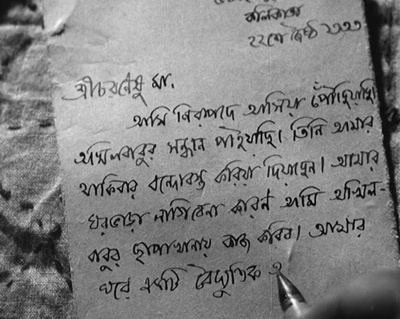 কলিকাতা
২২শে জ্যৈষ্ঠ ১৩৩৩
শ্রীচরণেষু মা,
আমি নিরাপদে আসিয়া পৌঁছিয়াছি
অখিলবাবুর সন্ধান পাইয়াছি। তিনি আমার
থাকিবার বন্দোবস্ত করিয়া দিয়াছেন। আমার
ঘরভাড়া লাগিবেনা কারণ আমি অখিল-
বাবুর ছাপাখানায় কাজ করিব। আমার
ঘরে একটি বৈদ্যুতিক